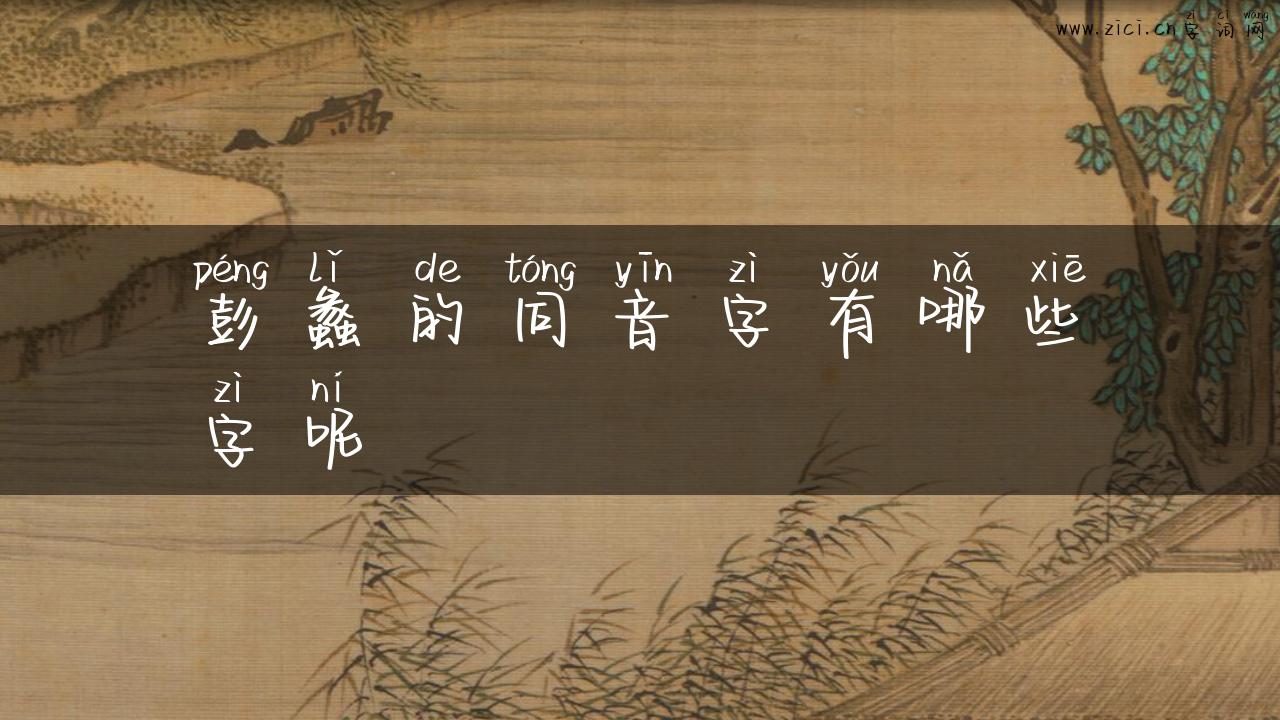 zì cí wǎng
www.zici.cn字词网
péng lǐ de tóng yīn zì yǒu nǎ xiē
彭蠡的同音字有哪些
zì ní
字呢